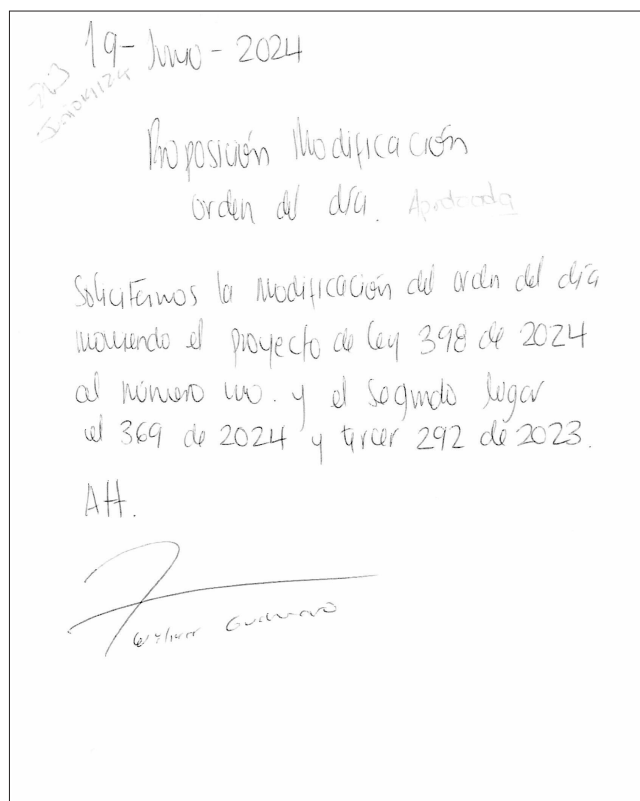 19-Junio-2024
Proposición Modificación
orden del día. Aprobada
Solicitamos la modificación del orden del día
moviendo el proyecto de ley 398 de 2024
al número uno. y el segundo lugar
el 369 de 2024 y tercer 292 de 2023.
Att.